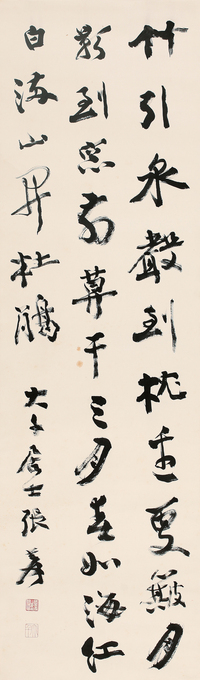 竹引泉聲到枕邊更簸月
影到窗前莫干三月春如海紅
白滿山開杜鵑
大千居士張爰